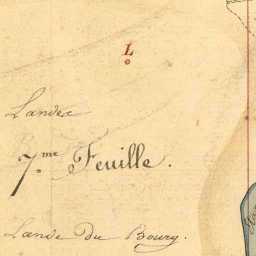 L
Landes
7.me Feuille.
Lande Du Bourg.